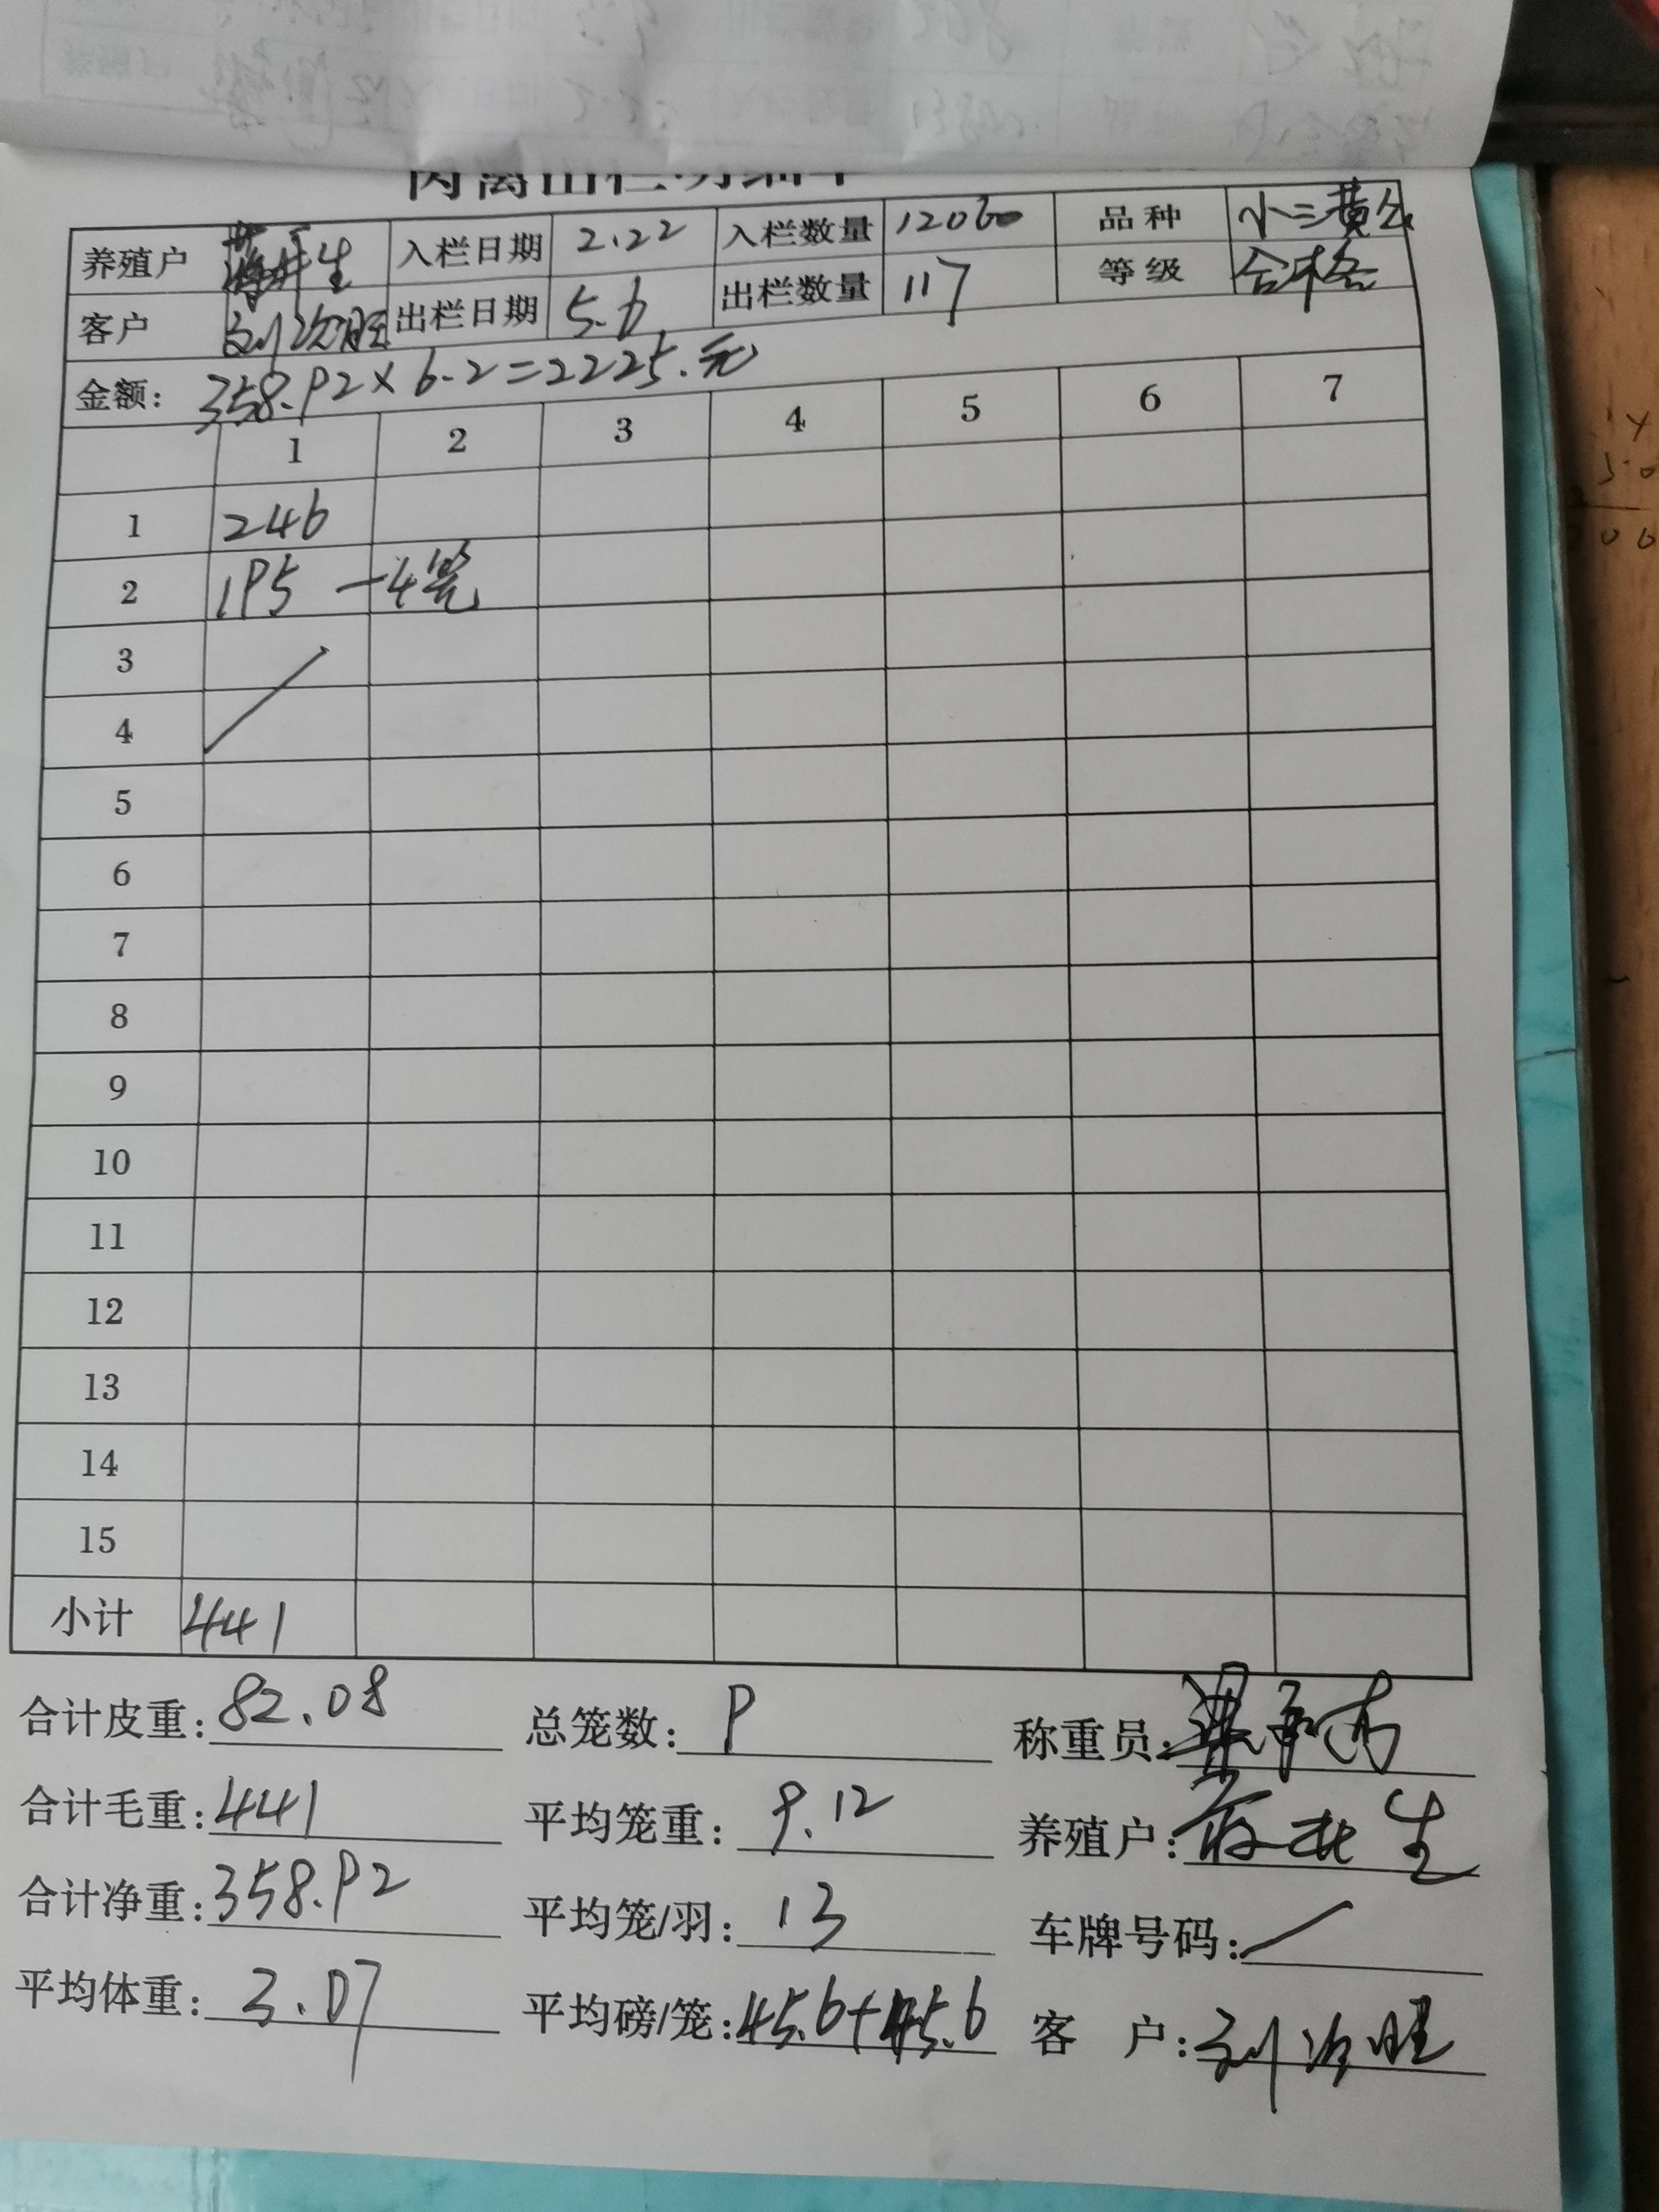 养殖户 生 入栏日期 2.22 入栏数量 12060 品种 小三黄公
客户 刘治旺 出栏日期 5.6 出栏数量 117 等级 合格
金额: 358.92×6.2=2225.元
1 2 3 4 5 6 7
1 246
2 195 一4笼
3
4
5
6
7
8
9
10
11
12
13
14
15
小计 441
合计皮重: 82.08 总笼数: 9 称重员:
合计毛重: 441 平均笼重: 9.12 养殖户: 生
合计净重: 358.92 平均笼/羽: 13 车牌号码: /
平均体重: 3.07 平均磅/笼: 45.6+45.6 客 户: 刘治旺